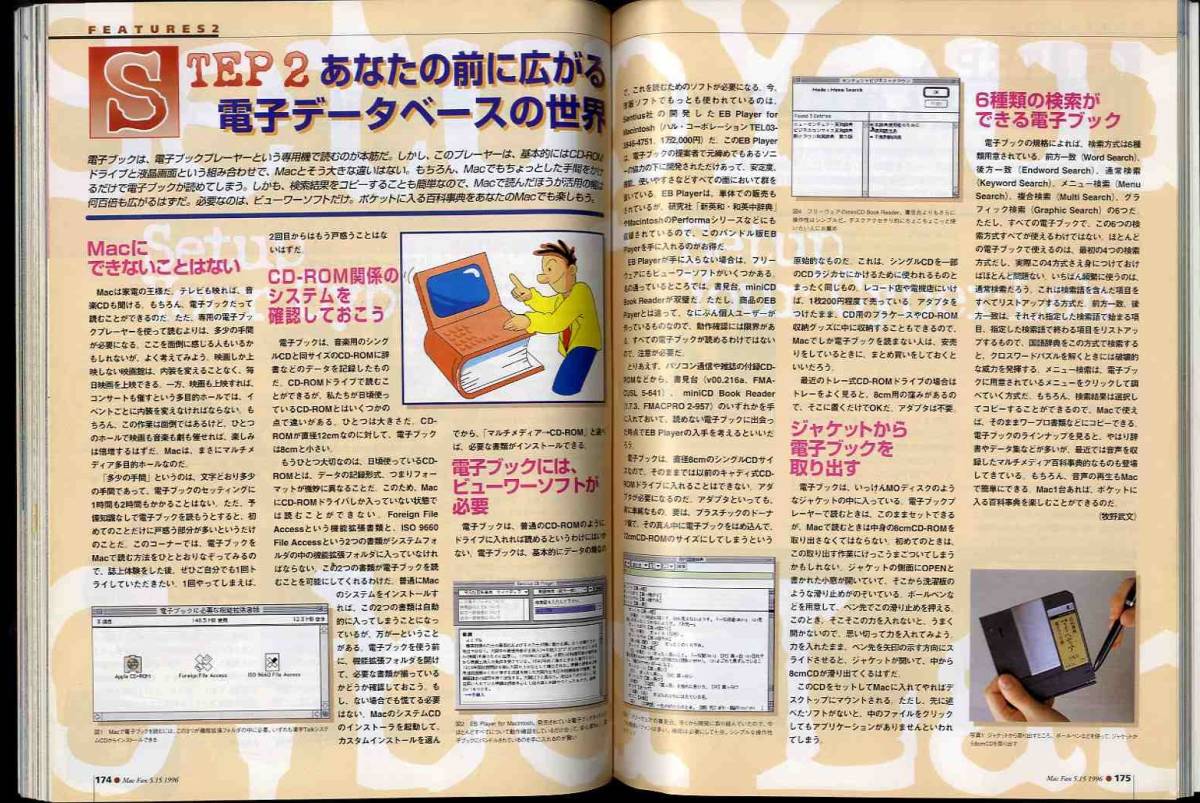 FEATURES2
STEP 2 あなたの前に広がる
電子データベースの世界
電子ブックは、電子ブックプレーヤーという専用機で読むのが本筋だ。しかし、このプレーヤーは、基本的にはCD-ROM
ドライブと液晶画面という組み合わせで、Macとそう大きな違いはない。もちろん、Macでもちょっとした手間をかけ
るだけで電子ブックが読めてしまう。しかも、検索結果をコピーすることも簡単なので、Macで読んだほうが活用の幅は
何百倍も広がるはずだ。必要なのは、ビューワーソフトだけ。ポケットに入る百科事典をあなたのMacでも楽しもう。
Macに
できないことはない
Macは家電の王様だ。テレビも映れば、音
楽CDも聞ける。もちろん、電子ブックだって
読むことができるのだ。ただ、専用の電子ブッ
クプレーヤーを使って読むよりは、多少の手間
が必要になる。ここを面倒に感じる人もいるか
もしれないが、よく考えてみよう。映画しか上
映しない映画館は、内装を変えることなく、毎
日映画を上映できる。一方、映画も上映すれば、
コンサートも催すという多目的ホールでは、イ
ベントごとに内装を変えなければならない。も
ちろん、この作業は面倒ではあるけど、ひとつ
のホールで映画も音楽も劇も催せれば、楽しみ
は倍増するはずだ。Macは、まさにマルチメ
ディア多目的ホールなのだ。
「多少の手間」というのは、文字どおり多少
の手間であって、電子ブックのセッティングに
1時間も2時間もかかることはない。ただ、予
備知識なしで電子ブックを読もうとすると、初
めてのことだけに戸惑う部分が多いというだけ
のことだ。このコーナーでは、電子ブックを
Macで読む方法をひととおりなぞってみるの
で、誌上体験をした後、ぜひご自分でも1回ト
ライしていただきたい。1回やってしまえば、
2回目からはもう戸惑うことはな
いはずだ。
CD-ROM関係の
システムを
確認しておこう
電子ブックは、音楽用のシング
ルCDと同サイズのCD-ROMに辞
書などのデータを記録したもの
だ。CD-ROMドライブで読むこ
とができるが、私たちが日頃使っ
ているCD-ROMとはいくつかの
点で違いがある。ひとつは大きさだ。CD-
ROMが直径12cmなのに対して、電子ブック
は8cmと小さい。
もうひとつ大切なのは、日頃使っているCD-
ROMとは、データの記録形式、つまりフォー
マットが微妙に異なることだ。このため、Mac
にCD-ROMドライバしか入っていない状態で
は読むことができない。Foreign File
Accessという機能拡張書類と、ISO 9660
File Accessという2つの書類がシステムフォ
ルダの中の機能拡張フォルダに入っていなけれ
ばならない。この2つの書類が電子ブックを読
むことを可能にしてくれるわけだ。普通にMac
のシステムをインストールす
れば、この2つの書類は自動
的に入ってしまうことになっ
ているが、万が一ということ
がある。電子ブックを使う前
に、機能拡張フォルダを開け
て、必要な書類が揃っている
かどうか確認しておこう。も
し、ない場合でも慌てる必要
はない。MacのシステムCD
のインストーラを起動して、
カスタムインストールを選ん
電子ブックに必要な機能拡張書類
Apple CD-ROM
Foreign File Access
ISO 9660 File Access
でから、「マルチメディア→CD-ROM」と選べ
ば、必要な書類がインストールできる。
電子ブックには、
ビューワーソフトが
必要
電子ブックは、普通のCD-ROMのように
ドライブに入れれば読めるというわけにはいか
ない。電子ブックは、基本的にデータの塊なの
174 ● Mac Fan 5.15 1996
で、これを読むためのソフトが必要になる。今、
市販ソフトでもっとも使われているのは、
Sentius社の開発したEB Player for
Macintosh（ハル・コーポレーション TEL03-
3846-4751、1万2,000円）だ。このEB Player
は、電子ブックの提案者で元締めでもあるソニ
ーの協力の下に開発されただけあって、安定度、
機能、使いやすさなどすべての面において群を
抜いている。EB Playerは、単体での販売も
されているが、研究社「新英和・和英中辞典」
やMacintoshのPerformaシリーズなどにも
収録されているので、このバンドル版EB
Playerを手に入れるのがお得だ。
EB Playerが手に入らない場合は、フリー
ウェアにもビューワーソフトがいくつかある。
名の通っているところでは、書見台、miniCD
Book Readerが双璧だ。ただし、商品のEB
Playerとは違って、なにぶん個人ユーザーが
作っているものなので、動作確認には限界があ
る。すべての電子ブックが読めるわけではない
ので、注意が必要だ。
とりあえず、パソコン通信や雑誌の付録CD-
ROMなどから、書見台（v00.216a、FMA-
CUSL 5-641）、miniCD Book Reader
（1.7.3、FMACPRO 2-957）のいずれかを手
に入れておいて、読めない電子ブックに出会っ
た時点でEB Playerの入手を考えるといいだ
ろう。
電子ブックは、直径8cmのシングルCDサイ
ズなので、そのままでは以前のキャディ式CD-
ROMドライブに入れることはできない。アダ
プタが必要になるのだ。アダプタといっても、
実に単純なもの。要は、プラスチックのドーナ
ツ板で、その真ん中に電子ブックをはめ込んで、
12cmCD-ROMのサイズにしてしまうという
Mode : Menu Search
Found 3 Entries
原始的なものだ。これは、シングルCDを一部
のCDラジカセにかけるために使われるものと
まったく同じもの。レコード店や電機店にいけ
ば、1枚200円程度で売っている。アダプタを
つけたまま、CD用のプラケースやCD-ROM
収納グッズに中に収納することもできるので、
Macでしか電子ブックを読まない人は、安売
りをしているときに、まとめ買いをしておくと
いいだろう。
最近のトレー式CD-ROMドライブの場合は
トレーをよく見ると、8cm用の窪みがあるの
で、そこに置くだけでOKだ。アダプタは不要。
ジャケットから
電子ブックを
取り出す
電子ブックは、いっけんMOディスクのよう
なジャケットの中に入っている。電子ブックプ
レーヤーで読むときは、このままセットできる
が、Macで読むときは中身の8cmCD-ROMを
取り出さなくてはならない。初めてのときは、
この取り出す作業にけっこうまごついてしまう
かもしれない。ジャケットの側面にOPENと
書かれた小窓が開いていて、そこから洗濯板の
ような滑り止めがのぞいている。ボールペンな
どを用意して、ペン先でこの滑り止めを押える。
このとき、そこそこの力を入れないと、うまく
開かないので、思い切って力を入れてみよう。
力を入れたまま、ペン先を矢印の示す方向にス
ライドさせると、ジャケットが開いて、中から
8cmCDが滑り出てくるはずだ。
このCDをセットしてMacに入れてやればデ
スクトップにマウントされる。ただし、先に述
べたソフトがないと、中のファイルをクリック
してもアプリケーションがありませんといわれ
てしまう。
6種類の検索が
できる電子ブック
電子ブックの規格によれば、検索方式は6種
類用意されている。前方一致（Word Search）、
後方一致（Endword Search）、通常検索
（Keyword Search）、メニュー検索（Menu
Search）、複合検索（Multi Search）、グラ
フィック検索（Graphic Search）の6つだ。
ただし、すべての電子ブックで、この6つの検
索方式すべてが使えるわけではない。ほとんど
の電子ブックで使えるのは、最初の4つの検索
方式だし、実際この4方式さえ身につけておけ
ばほとんど問題ない。いちばん頻繁に使うのは、
通常検索だろう。これは検索語を含んだ項目を
すべてリストアップする方式だ。前方一致、後
方一致は、それぞれ指定した検索語で始まる項
目、指定した検索語で終わる項目をリストアッ
プするもので、国語辞典をこの方式で検索する
と、クロスワードパズルを解くときには破壊的
な威力を発揮する。メニュー検索は、電子ブッ
クに用意されているメニューをクリックして調
べていく方式だ。もちろん、検索結果は選択し
てコピーすることができるので、Macで使え
ば、そのままワープロ書類などにコピーできる。
電子ブックのラインナップを見ると、やはり辞
書やデータ集などが多いが、最近では音声を収
録したマルチメディア百科事典的なものも登場
してきている。もちろん、音声の再生もMac
で簡単にできる。Mac1台あれば、ポケットに
入る百科事典を楽しむことができるのだ。
（牧野武文）
写真1 ジャケットから取り出すところ。ボールペンなどを使って、ジャケットか
ら8cmCDを取り出す
Mac Fan 5.15 1996 ● 175